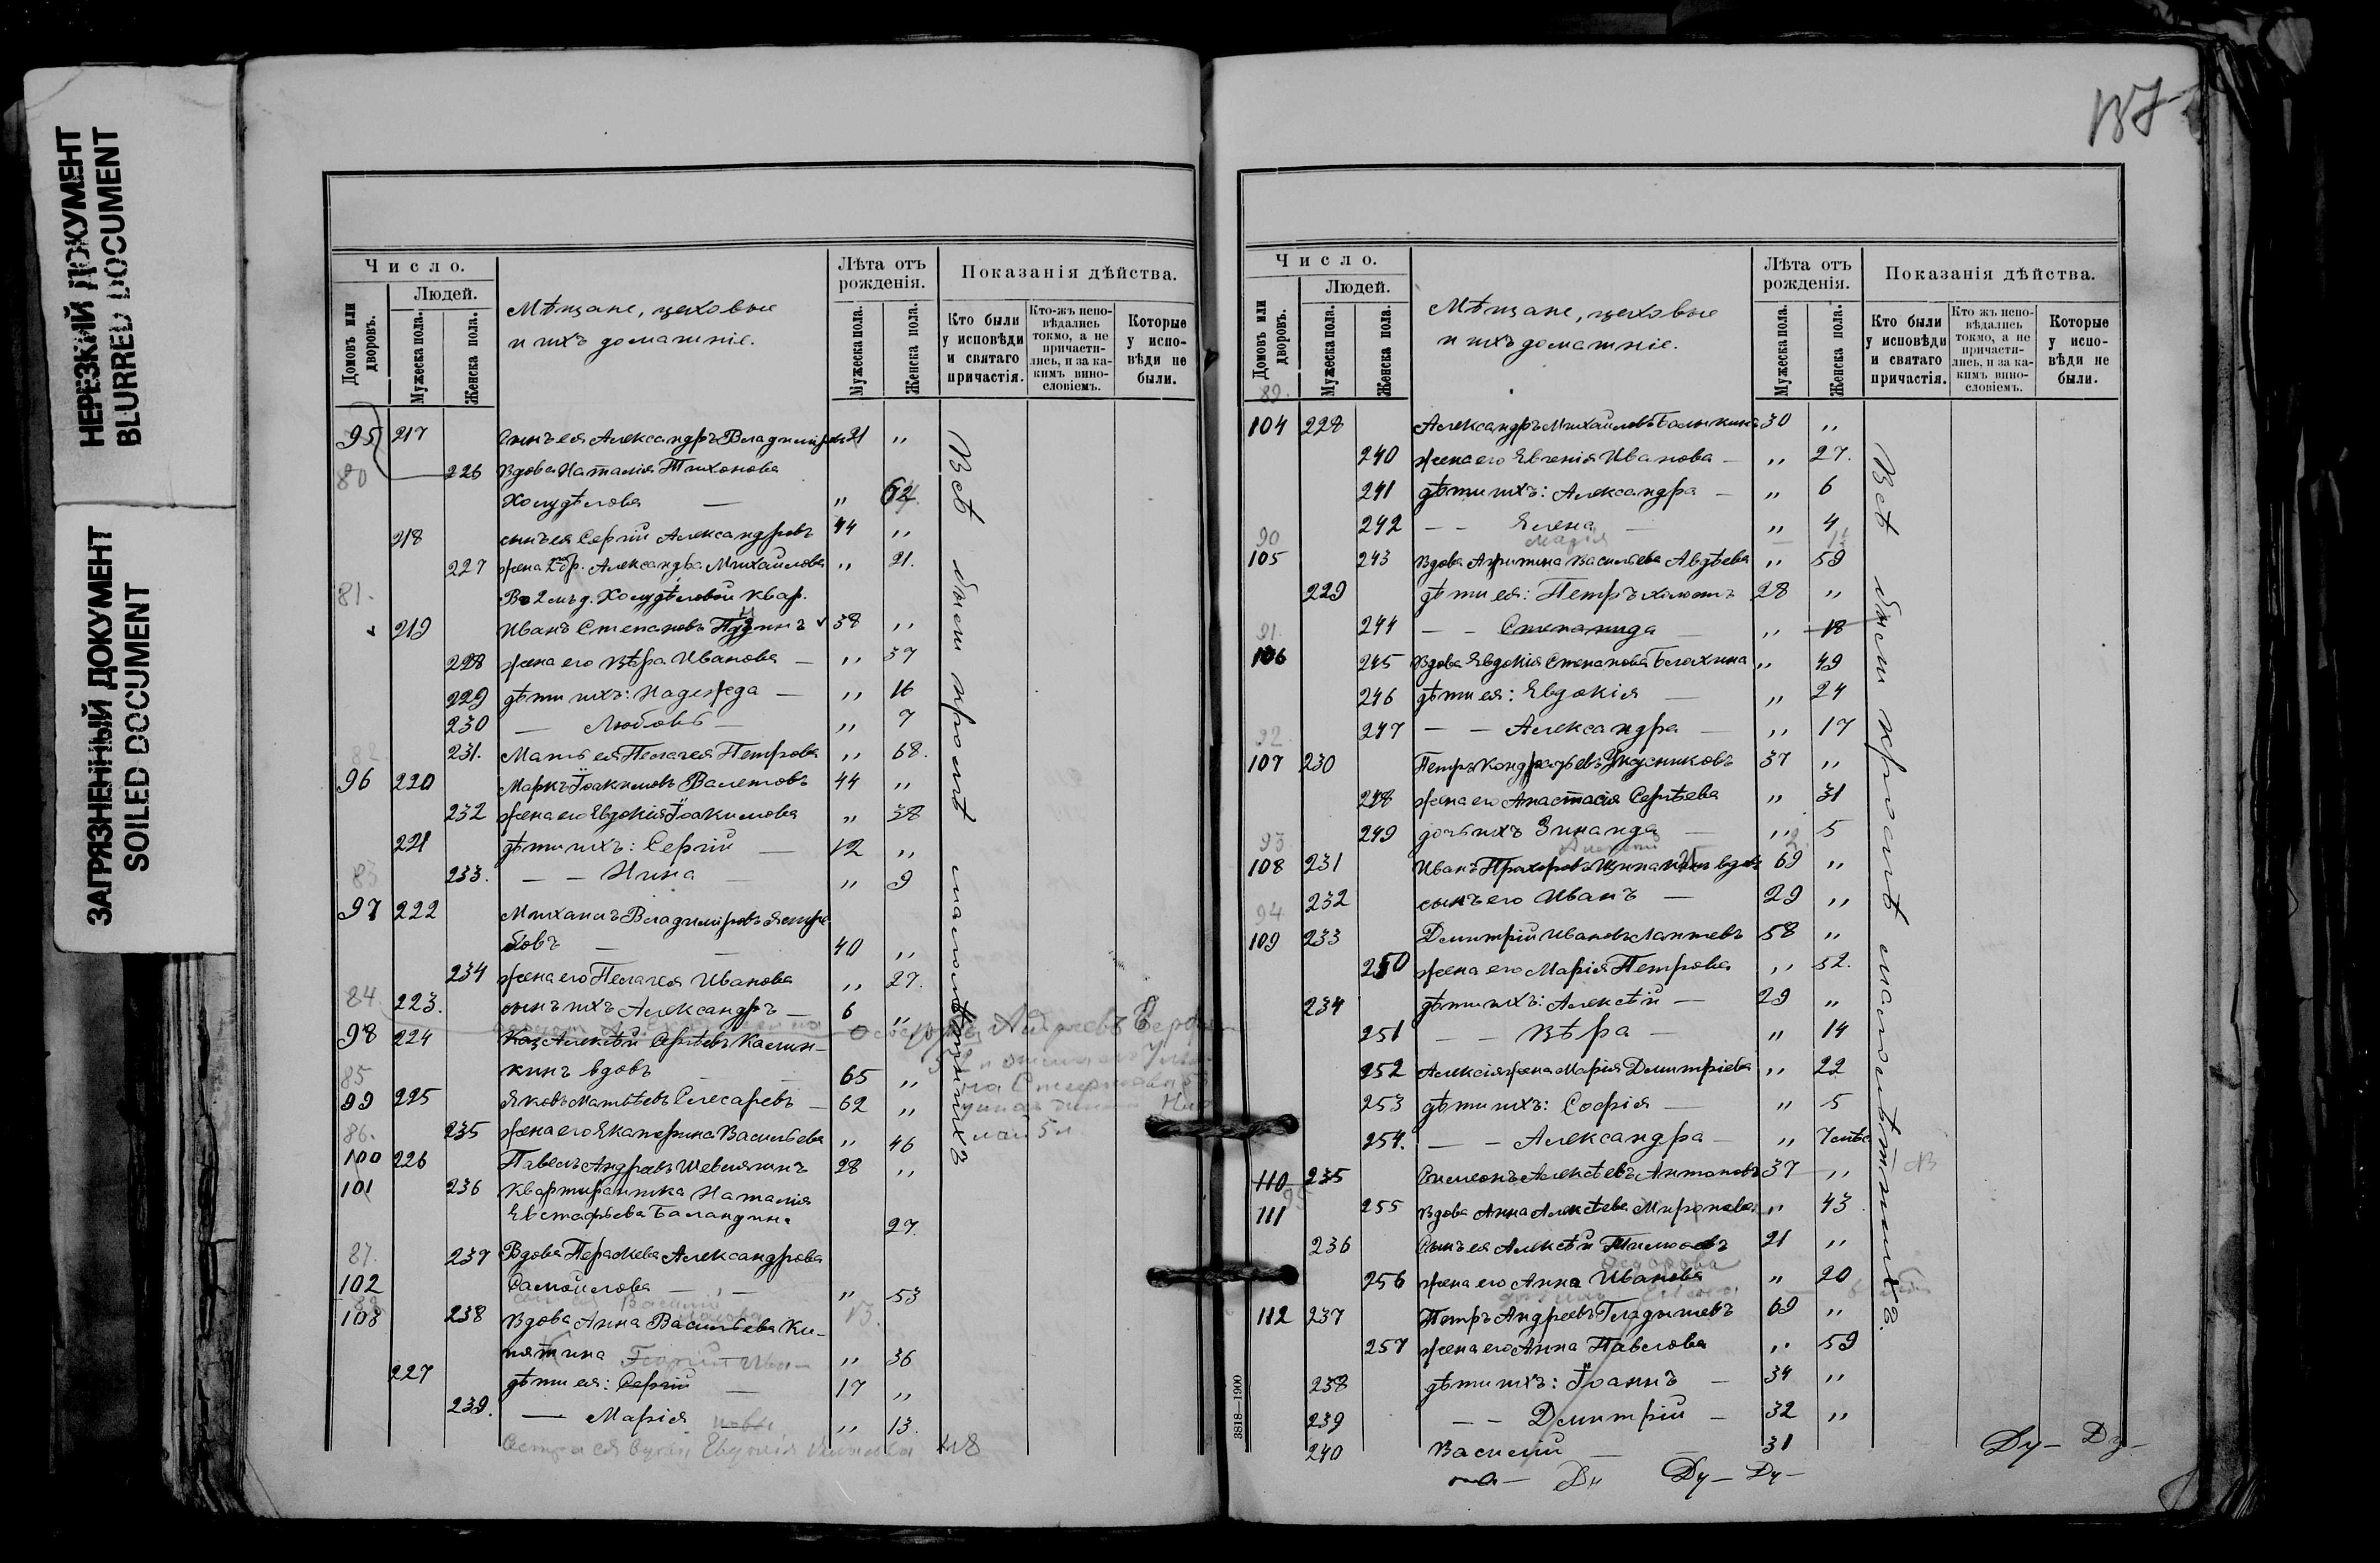 НЕРЕЗКИЙ ДОКУМЕНТ
BLURRED DOCUMENT
ЗАГРЯЗНЕННЫЙ ДОКУМЕНТ
SOILED DOCUMENT
Число.
Людей.
Домовъ или дворовъ.
Мужеска пола.
Женска пола.
Мѣщане, цеховые
и ихъ домашніе.
Лѣта отъ рожденія.
Мужеска пола.
Женска пола.
Показанія дѣйства.
Кто были у исповѣди и святаго причастія.
Кто-жъ испо-вѣдались токмо, а не причасти-лись, и за ка-кимъ вино-словіемъ.
Которые у испо-вѣди не были.
95 217 сынъ ея Александръ Владиміровъ 21 "
80 226 Вдова Наталія Тихонова
Холудѣлова — " 62
218 сынъ ея Сергій Александровъ 44 "
227 жена 2 бр. Александра Михайлова " 21.
81. Во 2 мъ д. Холудѣловой квар.
219 Иванъ Степановъ 38 "
228 жена его Вѣра Иванова — " 37
229 дѣти ихъ: Надежда — " 16
230 — Любовь — " 7
82 231. Мать ея Пелагея Петрова " 68.
96 220 Маркъ Іоакимовъ Валетовъ 44 "
232 жена его Евдокія Іоакимова " 38
221 дѣти ихъ: Сергій — 12 "
83 233. — — Нина — " 9
97 222 Михаилъ Владиміровъ Ястре
бовъ — 40 "
234 жена его Пелагея Иванова " 27.
84. 223. сынъ ихъ Александръ — 6 "
98 224 Алексѣй Сергѣевъ Калин-
кинъ вдовъ — 65 "
85
99 225 Яковъ Матвѣевъ Слесаревъ — 62 "
86. 235 жена его Екатерина Васильева " 46
100 226 Павелъ Андреевъ Шевлягинъ 28 "
101 236 Квартирантка Наталія
Евстафьева Баландина 27.
87. 237 Вдова Параскева Александрова
102 Самойлова — " 53
88
103 238 Вдова Анна Васильева Ки-
пятина " 36
227 дѣти ея: Сергій — 17 "
239. — Марія " 13.
Всѣ были кромѣ малолѣтнихъ
137
Число.
Людей.
Домовъ или дворовъ.
Мужеска пола.
Женска пола.
Мѣщане, цеховые
и ихъ домашніе.
Лѣта отъ рожденія.
Мужеска пола.
Женска пола.
Показанія дѣйства.
Кто были у исповѣди и святаго причастія.
Кто жъ испо-вѣдались токмо, а не причасти-лись, и за ка-кимъ вино-словіемъ.
Которые у испо-вѣди не были.
89.
104 228 Александръ Михайловъ Балыкинъ 30 "
240 жена его Евгенія Иванова — " 27.
241 дѣти ихъ: Александра — " 6
242 — — Елена — " 4
90 Марія
105 243 Вдова Васильева Авдѣева " 59
229 дѣти ея: Петръ холостъ 28 "
91. 244 — — Степанида — " 18
106 245 Вдова Евдокія Степанова Белохина " 49
246 дѣти ея: Евдокія — " 24
92. 247 — — Александра — " 17
107 230 Петръ Кондратьевъ 37 "
248 жена его Анастасія Сергѣева " 31
93 249 дочь ихъ Зинаида — " 5
108 231 Иванъ Прохоровъ вдовъ 69 "
94 232 сынъ его Иванъ — 29 "
109 233 Димитрій Ивановъ Лаптевъ 58 "
250 жена его Марія Петрова " 52.
234 дѣти ихъ: Алексѣй — 29 "
251 — — Вѣра — " 14
252 Алексія жена Марія Димитріева " 22
253 дѣти ихъ: Софія — " 5
254. — — Александра — " 7 мѣс
110 235 Симеонъ Алексѣевъ Антоновъ 37 "
95
111 255 Вдова Анна Алексѣева Миронова " 43
236 Сынъ ея Алексѣй 21 "
256 жена его Анна Иванова " 20
112 237 Петръ Андреевъ Гладышевъ 69 "
257 жена его Анна Павлова " 59
238 дѣти ихъ: Іоаннъ — 34 "
239 — — Димитрій — 32 "
240 Василій — 31
Всѣ были кромѣ малолѣтнихъ.
3818—1900